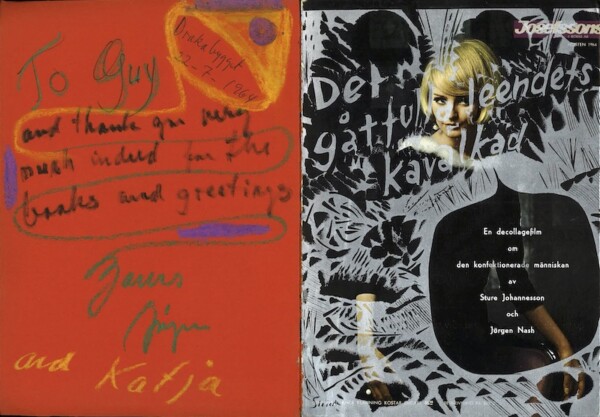 To Guy
Drakabygget
22.7.1964
and thank you very
much indeed for the
books and greetings
Yours
Jørgen
and Katja
Josefssons
HÖSTEN 1964
Det
gåtfulla leendets
kavalkad
En decollagefilm
om
den konfektionerade människan
av
Sture Johannesson
och
Jörgen Nash